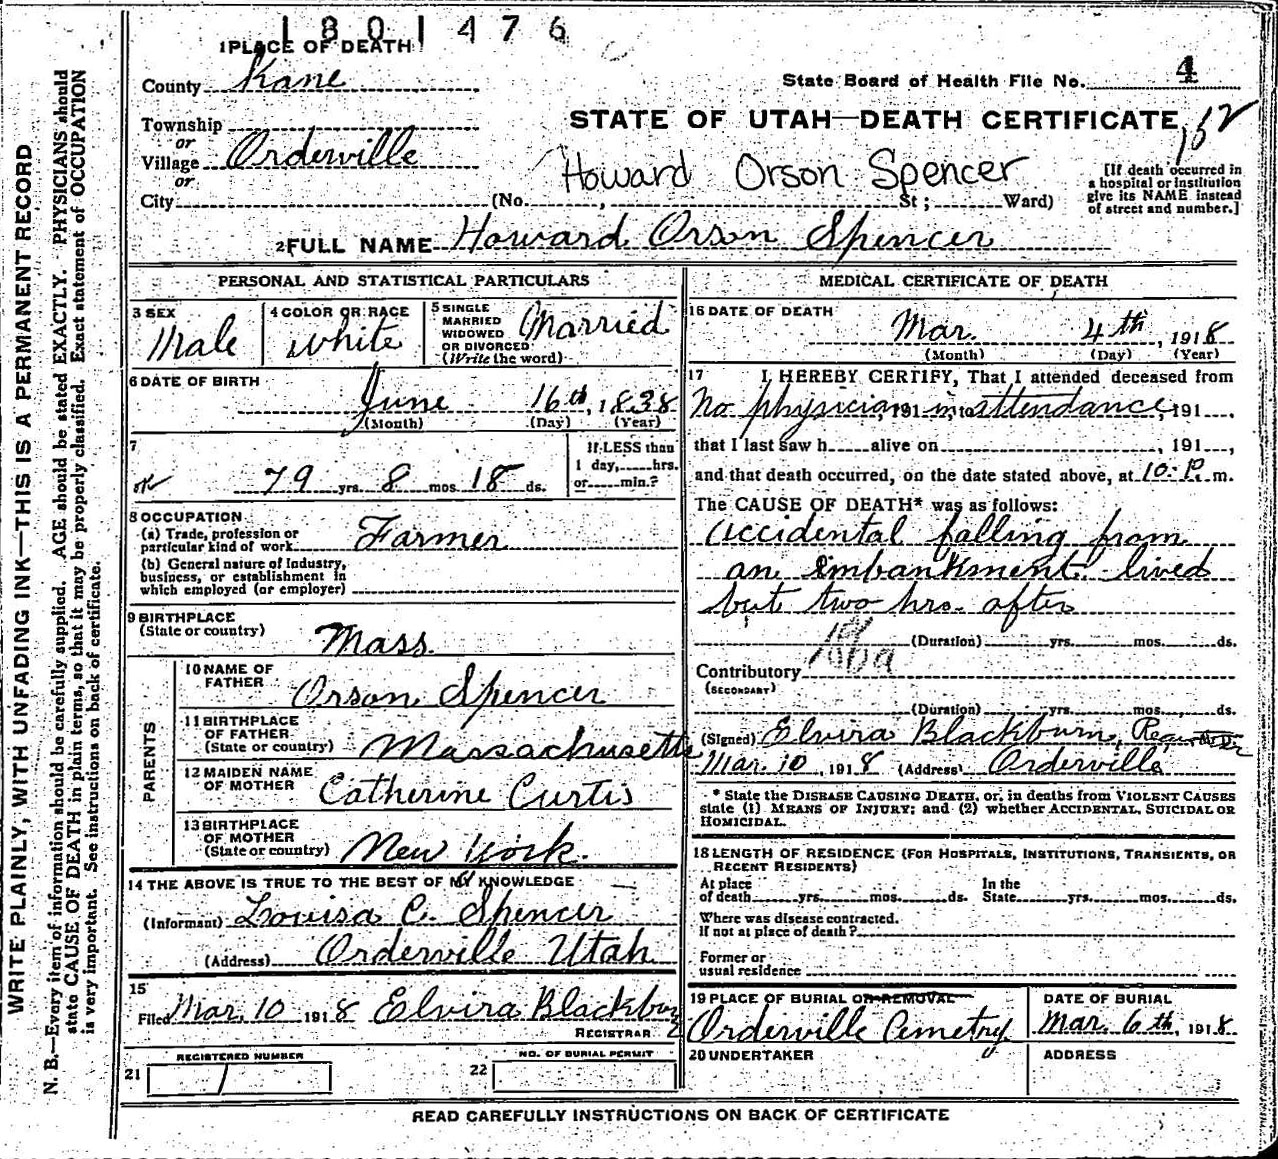 1801476
1 PLACE OF DEATH
County Kane
State Board of Health File No. 4
Township
or
Village Orderville
or
City (No. , St; Ward)
STATE OF UTAH—DEATH CERTIFICATE
152
Howard Orson Spencer
[If death occurred in
a hospital or institution
give its NAME instead
of street and number.]
2 FULL NAME Howard Orson Spencer
WRITE PLAINLY, WITH UNFADING INK—THIS IS A PERMANENT RECORD
N. B.—Every item of information should be carefully supplied. AGE should be stated EXACTLY. PHYSICIANS should
state CAUSE OF DEATH in plain terms, so that it may be properly classified. Exact statement of OCCUPATION
is very important. See instructions on back of certificate.
PERSONAL AND STATISTICAL PARTICULARS
3 SEX
Male
4 COLOR OR RACE
White
5 SINGLE
MARRIED
WIDOWED
OR DIVORCED
(Write the word)
Married
6 DATE OF BIRTH
June 16th, 1838
(Month) (Day) (Year)
7
OK 79 yrs. 8 mos. 18 ds.
If LESS than
1 day, hrs.
or min.?
8 OCCUPATION
(a) Trade, profession or
particular kind of work Farmer
(b) General nature of Industry,
business, or establishment in
which employed (or employer)
9 BIRTHPLACE
(State or country) Mass.
PARENTS
10 NAME OF
FATHER Orson Spencer
11 BIRTHPLACE
OF FATHER
(State or country) Massachusetts
12 MAIDEN NAME
OF MOTHER Catherine Curtis
13 BIRTHPLACE
OF MOTHER
(State or country) New York.
14 THE ABOVE IS TRUE TO THE BEST OF MY KNOWLEDGE
(Informant) Louisa C. Spencer
(Address) Orderville Utah
15
Filed Mar. 10 1918 Elvira Blackburn
REGISTRAR
REGISTERED NUMBER
21
NO. OF BURIAL PERMIT
22
MEDICAL CERTIFICATE OF DEATH
16 DATE OF DEATH
Mar. 4th, 1918
(Month) (Day) (Year)
17 I HEREBY CERTIFY, That I attended deceased from
No physician 191 in to attendance, 191 ,
that I last saw h alive on , 191 ,
and that death occurred, on the date stated above, at 10. P. m.
The CAUSE OF DEATH* was as follows:
Accidental falling from
an embankment. lived
but two hrs. after
(Duration) yrs. mos. ds.
Contributory
(SECONDARY)
(Duration) yrs. mos. ds.
(Signed) Elvira Blackburn,
Mar. 10, 1918 (Address) Orderville
* State the DISEASE CAUSING DEATH, or, in deaths from VIOLENT CAUSES
state (1) MEANS OF INJURY; and (2) whether ACCIDENTAL, SUICIDAL OR
HOMICIDAL.
18 LENGTH OF RESIDENCE (FOR HOSPITALS, INSTITUTIONS, TRANSIENTS, OR
RECENT RESIDENTS)
At place
of death yrs. mos. ds.
In the
State yrs. mos. ds.
Where was disease contracted.
If not at place of death?
Former or
usual residence
19 PLACE OF BURIAL OR REMOVAL
Orderville Cemetry
DATE OF BURIAL
Mar. 6th, 1918.
20 UNDERTAKER
ADDRESS
READ CAREFULLY INSTRUCTIONS ON BACK OF CERTIFICATE